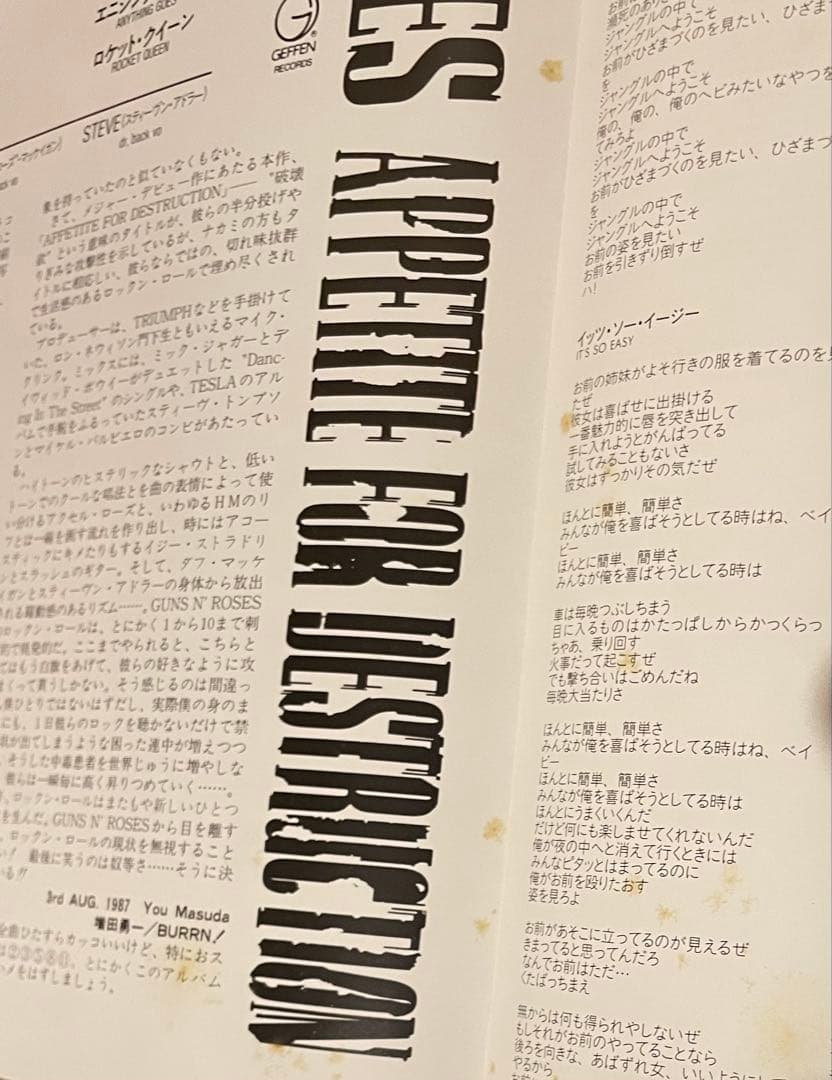 エニシング
ANYTHING GOES
ロケット・クイーン
ROCKET QUEEN
GEFFEN
RECORDS
STEVE(スティーヴン・アドラー)
dr, back vo
象を持っていたのと似ていなくもない。
さて、メジャー・デビュー作にあたる本作、
「APPETITE FOR DESTRUCTION」——“破壊
欲”という意味のタイトルが、彼らの半分投げや
りぎみな攻撃性を示しているが、ナカミの方もタ
イトルに相応しい、彼らならではの、切れ味抜群
で生活感のあるロックン・ロールで埋め尽くされ
ている。
プロデューサーは、TRIUMPHなどを手掛けて
いた、ロン・ネヴィソン門下生ともいえるマイク・
クリンク。ミックスには、ミック・ジャガーとデ
イヴィッド・ボウイーがデュエットした“Danc-
ing In The Street”のシングルや、TESLAのアル
バムで手腕をふるっていたスティーヴ・トンプソ
ンとマイケル・バルビエロのコンビがあたってい
る。
ハイトーンのヒステリックなシャウトと、低い
トーンでのクールな唱法とを曲の表情によって使
い分けるアクセル・ローズと、いわゆるHMのリ
フとは一線を画す流れを作り出し、時にはアコー
スティックにキメたりもするイジー・ストラドリ
ンとスラッシュのギター。そして、ダフ・マッケ
イガンとスティーヴン・アドラーの身体から放出
される躍動感のあるリズム……。GUNS N' ROSES
のロックン・ロールは、とにかく1から10まで刺
的で挑発的だ。ここまでやられると、こちらと
てはもう白旗をあげて、彼らの好きなように攻
まくって貰うしかない。そう感じるのは間違っ
僕ひとりではないはずだし、実際僕の身のま
にも、1日彼らのロックを聴かないだけで禁
状が出てしまうような困った連中が増えつつ
そうした中毒患者を世界じゅうに増やしな
彼らは一瞬毎に高く昇りつめていく……。
ロックン・ロールはまたもや新しいひとつ
を生んだ。GUNS N' ROSESから目を離す
ロックン・ロールの現状を無視すること
い! 最後に笑うのは奴等さ……そうに決
いる!!
3rd AUG. 1987 You Masuda
増田勇一/BURRN!
全曲ひたすらカッコいいけど、特におス
は②③⑤⑧⑫、とにかくこのアルバム
ハメをはずしましょう。
ES APPETITE FOR DESTRUCTION
ジャングルの中で
ジャングルへようこそ
お前がひざまづくのを見たい、ひざま
を
ジャングルの中で
ジャングルへようこそ
俺の、俺の、俺のヘビみたいなやつを
てみろよ
ジャングルの中で
ジャングルへようこそ
お前がひざまづくのを見たい、ひざまづ
を
ジャングルの中で
ジャングルへようこそ
お前の姿を見たい
お前を引きずり倒すぜ
ハ!
イッツ・ソー・イージー
IT'S SO EASY
お前の姉妹がよそ行きの服を着てるのを見
たぜ
彼女は喜ばせに出掛ける
一番魅力的に唇を突き出して
手に入れようとがんばってる
試してみることもないさ
彼女はすっかりその気だぜ
ほんとに簡単、簡単さ
みんなが俺を喜ばそうとしてる時はね、ベイ
ビー
ほんとに簡単、簡単さ
みんなが俺を喜ばそうとしてる時は
車は毎晩つぶしちまう
目に入るものはかたっぱしからかつくらっ
ちゃあ、乗り回す
火事だって起こすぜ
でも撃ち合いはごめんだね
毎晩大当たりさ
ほんとに簡単、簡単さ
みんなが俺を喜ばそうとしてる時はね、ベイ
ビー
ほんとに簡単、簡単さ
みんなが俺を喜ばそうとしてる時は
ほんとにうまくいくんだ
だけど何にも楽しませてくれないんだ
俺が夜の中へと消えて行くときには
みんなピタッとはまってるのに
俺がお前を殴りたおす
姿を見ろよ
お前があそこに立ってるのが見えるぜ
きまってると思ってんだろ
なんでお前はただ…
くたばっちまえ
無からは何も得られやしないぜ
もしそれがお前のやってることなら
後ろを向きな、あばずれ女、いいように
やるから